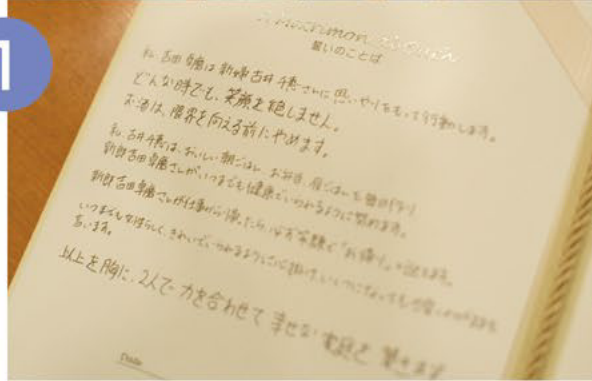 1
誓いのことば
私 吉田 は新婦吉井千穂さんに思いやりをもって行動します。
どんな時でも、笑顔を絶しません。
お酒は、限界を向える前にやめます。
私、吉井千穂は、おいしい朝ごはん、お弁当、夜ごはんを毎日作り
新郎吉田 さんがいつまでも健康でいられるように努めます。
新郎吉田 さんが仕事から帰ったら、必ず笑顔で「お帰り。」
いつまでも きれいでいられるように心掛け、いくつになっても
言います。
以上を胸に、2人で力を合わせて幸せな家庭を築きます
Date